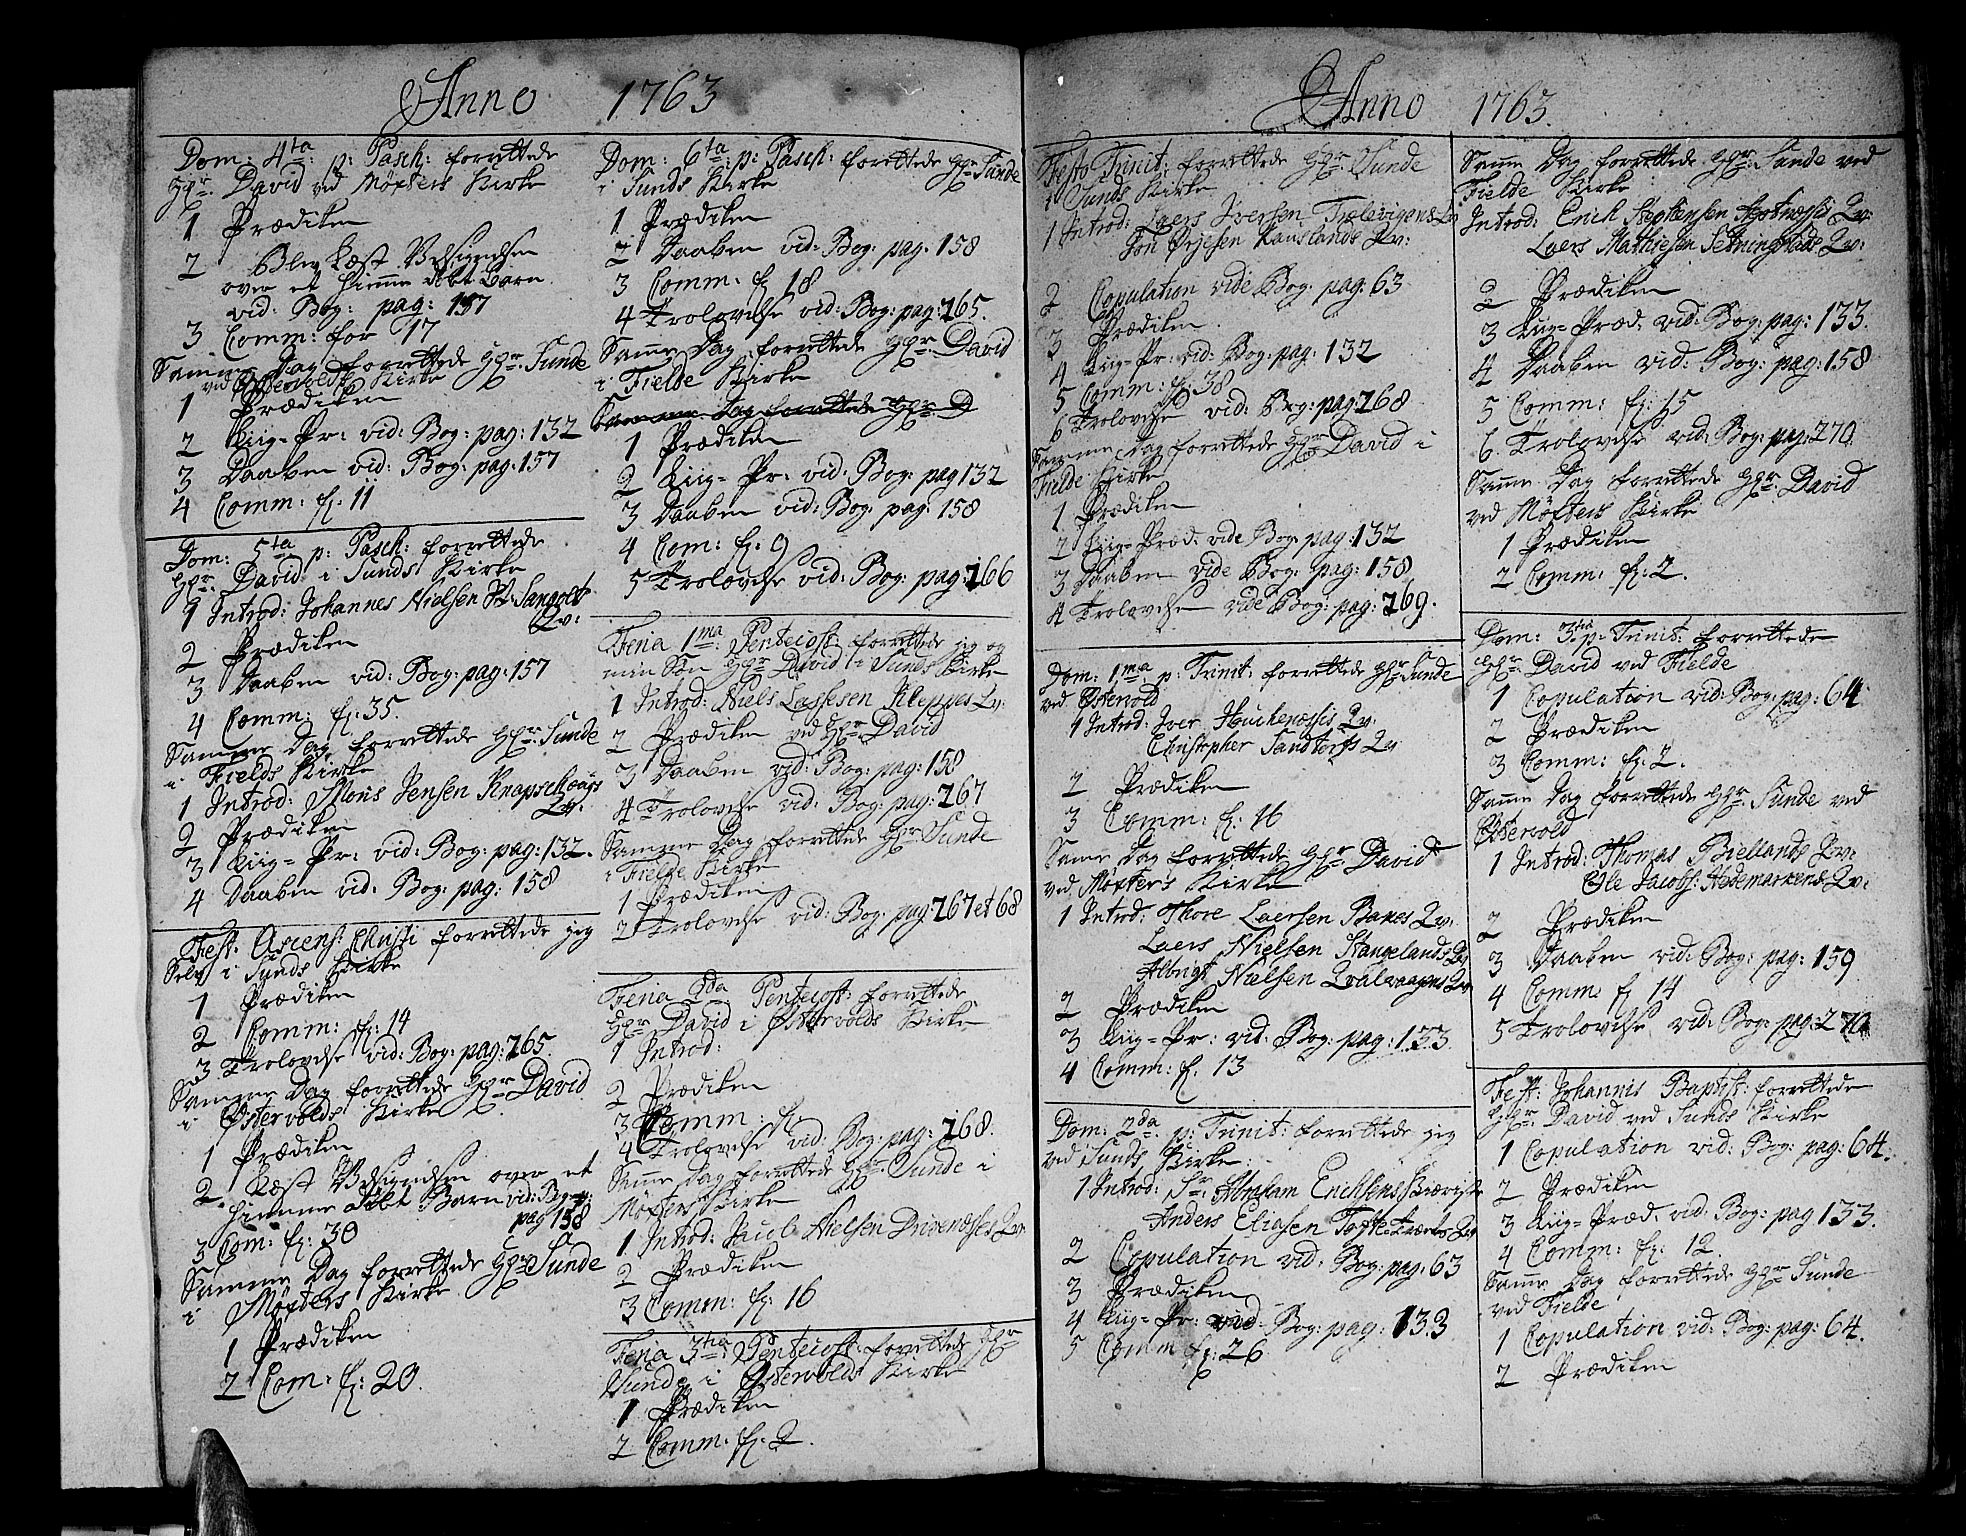 Anno 1763
Dom: 4ta p: Pasch: forrettede
Hr. David ved Møxters Kirke
1 Prædiken
2 Blev Læst Velsignelsen
over et hiemme døbt Barn
vid: Bog: pag: 157
3 Comm: for 17
Samme Dag forrettede Hr. Sunde
ved Østervolds Kirke
1 Prædiken
2 Liig-Pr: vid: Bog: pag: 132
3 Daaben vid: Bog: pag: 157
4 Comm: f: 11
Dom: 5ta p: Pasch: forrettede
Hr. David i Sunds Kirke
1 Introd: Johannes Nielsen Sangolt
Qv:
2 Prædiken
3 Daaben vid: Bog: pag: 157
4 Comm: f: 35.
Samme Dag forrettede Hr. Sunde
i Fields Kirke
1 Introd: Mons Jensen Knapschougs
Qv:
2 Prædiken
3 Liig-Pr: vid: Bog: pag: 132.
4 Daaben vid: Bog: pag: 158
Fest: Ascens: Christi forrettede jeg
Selv i Sunds Kirke
1 Prædiken
2 Comm: f: 14
3 Trolovelse vid: Bog: pag: 265.
Samme Dag forrettede Hr David
i Østervolds Kirke
1 Prædiken
2 Læst Velsignelsen over et
hiemme Døbt Barn vid: Bog:
pag 158
3 Com: f: 30
Samme Dag forrettede Hr Sunde
i Møxters Kirke
1 Prædiken
2 Com: f: 20.
Dom: 6ta p: Pasch: forettede Hr Sunde
i Sunds Kirke
1 Prædiken
2 Daaben vid: Bog: pag: 158
3 Comm: f: 18
4 Trolovelse vid: Bog: pag: 265.
Samme Dag forrettede Hr. David
i Fielde Kirke
Samme Dag forrettede Hr D
1 Prædiken
2 Liig-Pr: vid: Bog: pag 132
3 Daaben vid: Bog: pag: 158
4 Com: f: 9
5 Trolovelse vid: Bog: pag: 266
Feria 1ma Pentecost: forrettede jeg og
min Søn Hr David i Sunds Kirke
1 Introd: Niels Lassesen Kleppes Qv:
2 Prædiken ved Hr David
3 Daaben vid: Bog: pag: 158
4 Trolovelse vid: Bog: pag: 267
Samme Dag forrettede Hr Sunde
i Fielde Kirke
1 Prædiken
2 Trolovelse vid: Bog: pag 267 et 68
Feria 2da Pentecost: forrettede
Hr David i Østervolds Kirke
1 Introd:
2 Prædiken
3 Comm:
4 Trolovelse vid: Bog: pag: 268.
Samme Dag forrettede Hr Sunde i
Møxters Kirke
1 Introd: Nielsen Drivenæsses Qv:
2 Prædiken
3 Comm: f: 16
Feria 3tia Pentecost: forrettede Hr
Sunde i Østervolds Kirke
1 Prædiken
2 Comm: f: 2.
Anno 1763.
Festo Trinit: forrettede Hr Sunde
i Sunds Kirke
1 Introd: Laers Iversen Trælevigens Qv
Jon Ørjesen Kauslands Qv:
2 Copulation vide Bog: pag: 63
3 Prædiken
4 Liig-Pr: vid: Bog: pag: 132
5 Comm: f: 38
6 Trolovelse vid: Bog: pag: 268
Samme Dag forrettede Hr David i
Fielde Kirke
1 Prædiken
2 Liig-Præd: vide Bog: pag: 132
3 Daaben vide Bog: pag: 158
4 Trolovelsen vide Bog: pag: 269.
Dom: 1ma p: Trinit: forrettede Hr Sunde
ved Østervold
1 Introd: Iver Houchenæssis Qv:
Christopher Sandtorfs Qv
2 Prædiken
3 Comm: f: 16
Samme Dag forrettede Hr David
ved Møxters Kirke
1 Introd: Thore Laersen Banes Qv:
Laers Nielsen Hangelands Qv
Albrigt Nielsen Qvalvaagens Qv
2 Prædiken
3 Liig-Pr: vid: Bog: pag: 133
4 Comm: f: 13
Dom: 2da p: Trinit: forrettede jeg
ved Sunds Kirke
1 Introd: Sr: Abraham Erichsens
Anders Eliasen Qv
2 Copulation vid: Bog: pag: 63
3 Prædiken
4 Liig-Pr: vid: Bog: pag: 133
5 Comm f: 26
Samme Dag forrettede Hr Sunde ved
Fielde Kirke
Introd: Erich Stephensen Qv:
Laers Mathiesen Qv:
2 Prædiken
3 Liig-Præd. vid: Bog: pag: 133.
4 Daaben vid: Bog: pag: 158
5 Comm: f: 15
6. Trolovelse vid: Bog: pag: 270.
Samme Dag forrettede Hr. David
ved Møxters Kirke
1 Prædiken
2 Comm: f: 2.
Dom: 3tia p: Trinit: forrettede
Hr David ved Fielde
1 Copulation vid: Bog: pag: 64
2 Prædiken
3 Comm: f: 2.
Samme Dag forrettede Hr Sunde ved
Østervold
1 Introd: Thomas Biellands Qv:
Ole Jacobs: Hedemarkens Qv:
2 Prædiken
3 Daaben vid: Bog: pag: 159
4 Comm: f: 14
5 Trolovelse vid: Bog: pag: 270
Fest: Johannis Baptist: forrettede
Hr David ved Sunds Kirke
1 Copulation vid: Bog: pag: 64.
2 Prædiken
3 Liig-Præd. vid: Bog: pag 133.
4 Comm: f: 12.
Samme Dag forrettede Hr Sunde
ved Fielde
1 Copulation vid: Bog: pag: 64.
2 Prædiken